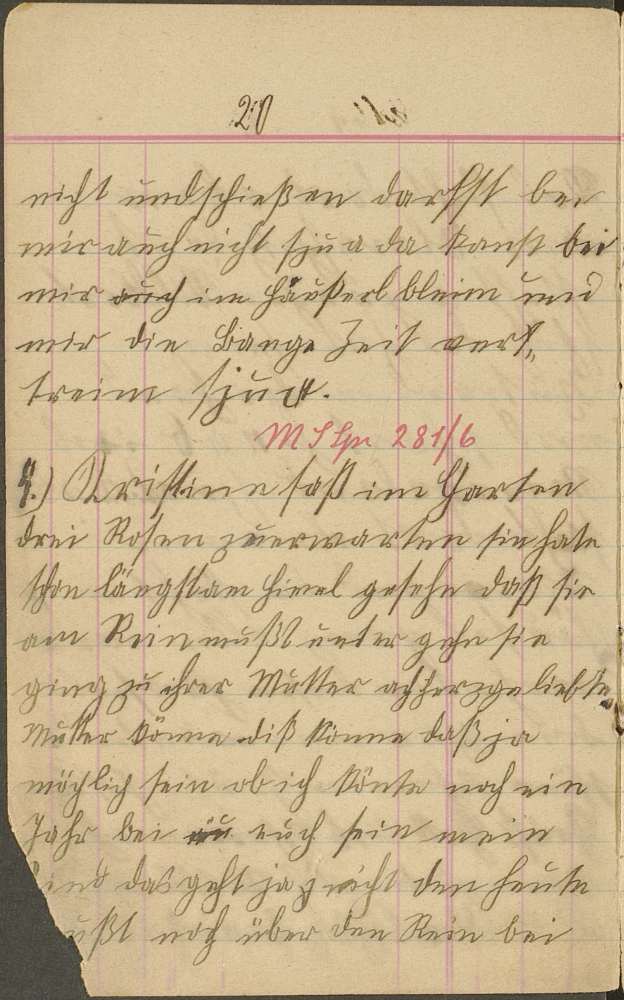 20
nicht undschießen darfst bei
mir auch nicht sju a da kanst bei
mir auch im häußerl bleim und
mir die Lange Zeit verst„
treim sjuch.
281/6
4.) Kristinn saß im Garten
drei Rosen zuerwarten sie hate
schon längst am Himel gesehn daß sie
am Rein mußt unter gehn sie
ging zu ihrer Mutter ach herzgeliebte
Mutter könne diß könne daß ja
möchlich sein ob ich könte noch ein
Jahr bei euch sein mein
kind das geht ja nicht den heute
ußt noch über den Rein bei